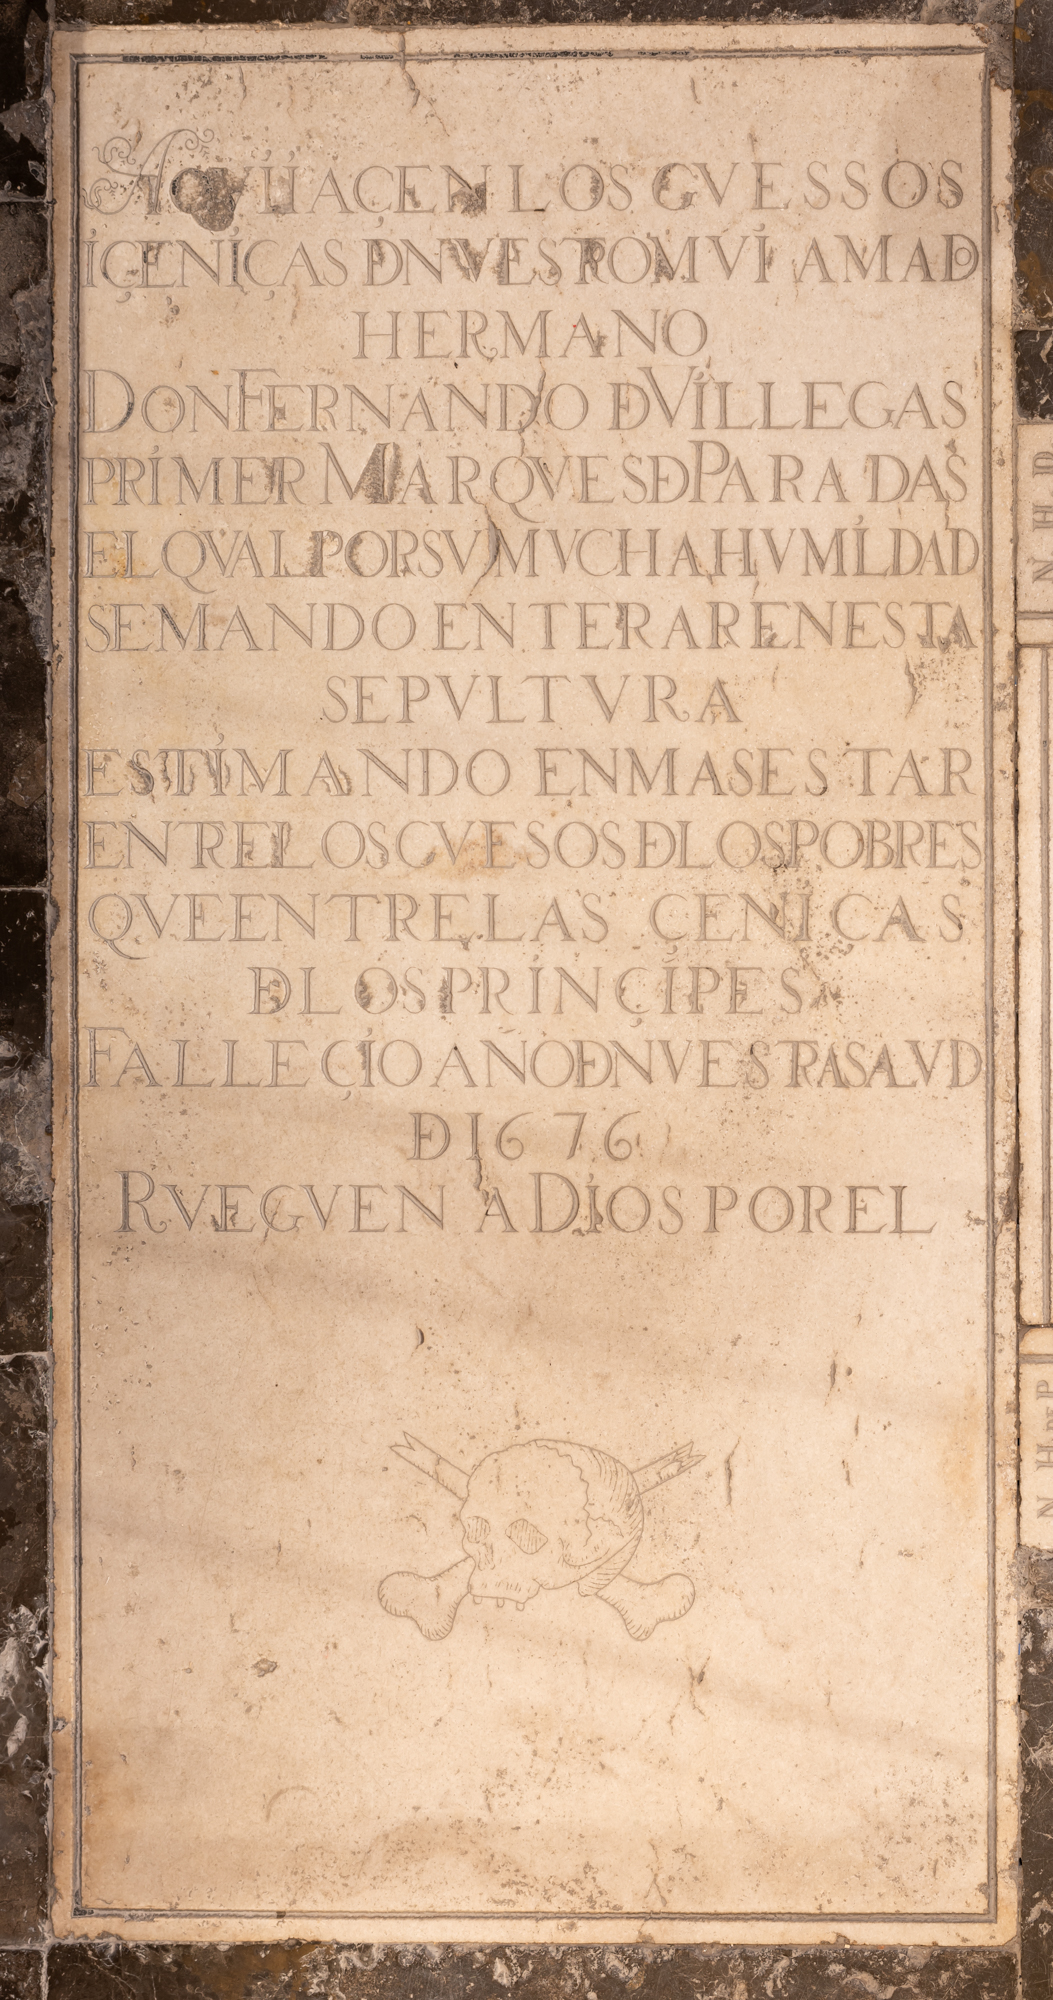 AQVI IAÇEN LOS GVESSOS
I ÇENIÇAS ĐNVESTRO MVI AMADO
HERMANO
DON FERNANDO Đ VILLEGAS
PRIMER MARQVES Đ PARADAS
EL QVAL POR SV MVCHA HVMILDAD
SE MANDO ENTERAR EN ESTA
SEPVLTVRA
ESTIMANDO EN MAS ESTAR
ENTRE LOS CVESOS ĐLOS POBRES
QVE ENTRE LAS CENICAS
ĐLOS PRINÇIPES
FALLEÇIO ANO ĐNVESTRA SALVD
Đ 1676
RVEGVEN A DIOS POR EL
N H D
N H DE P